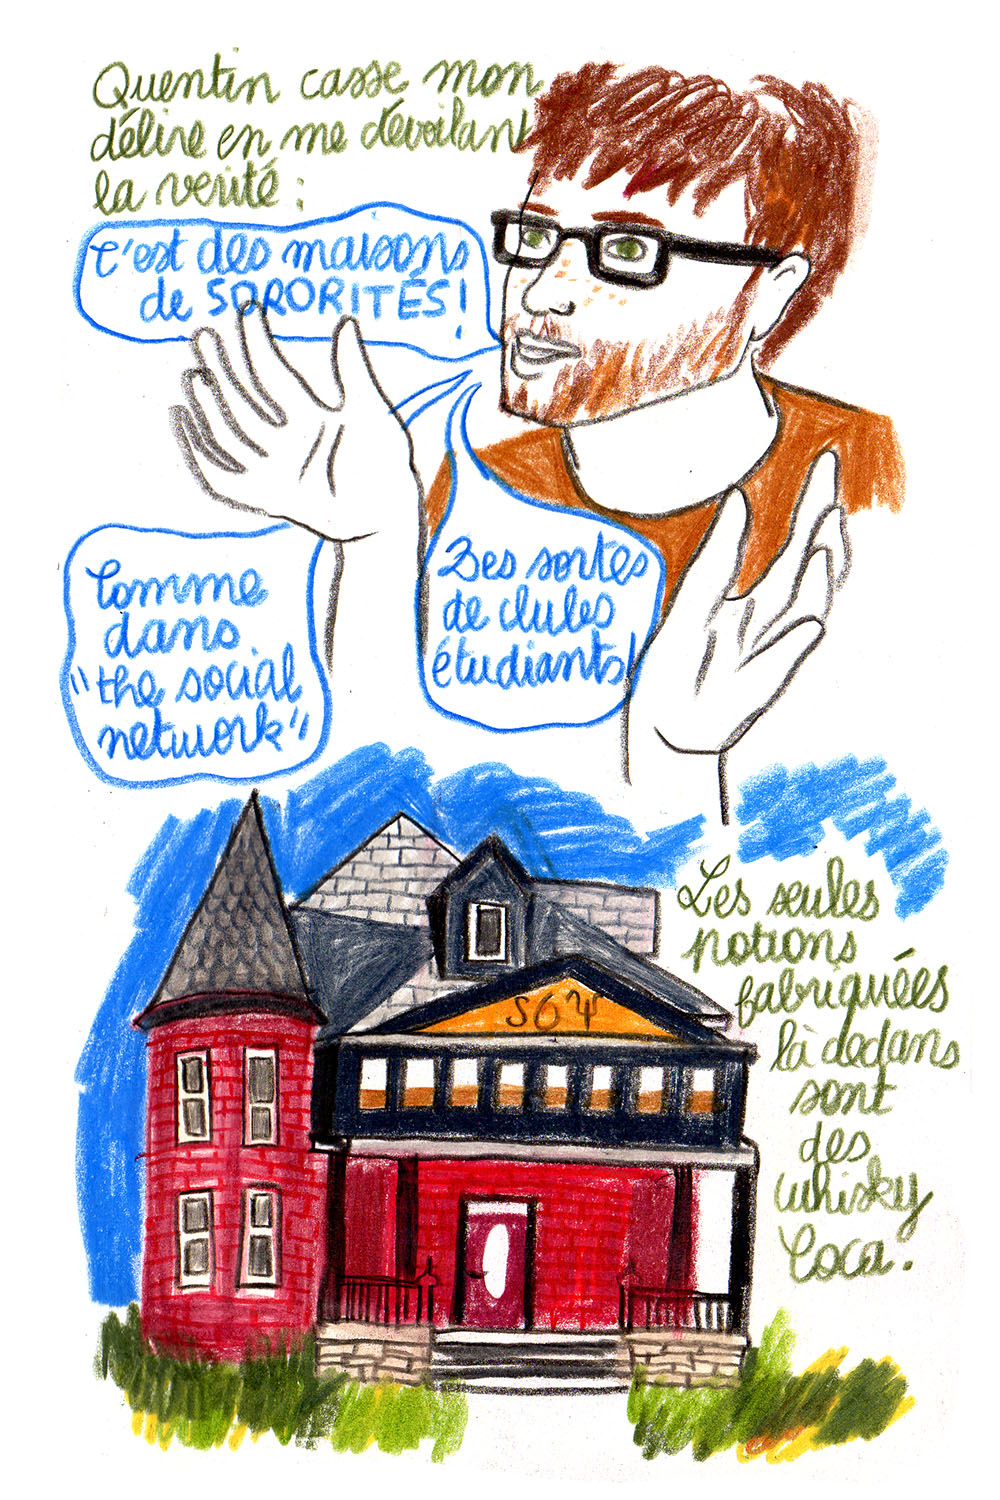 Quentin casse mon
délire en me dévoilant
la verité :
C'est des maisons
de SORORITÉS !
Des sortes
de clubs
étudiants!
Comme
dans
"the social
network"
SΘΨ
Les seules
potions
fabriquées
là dedans
sont
des
whisky
Coca.